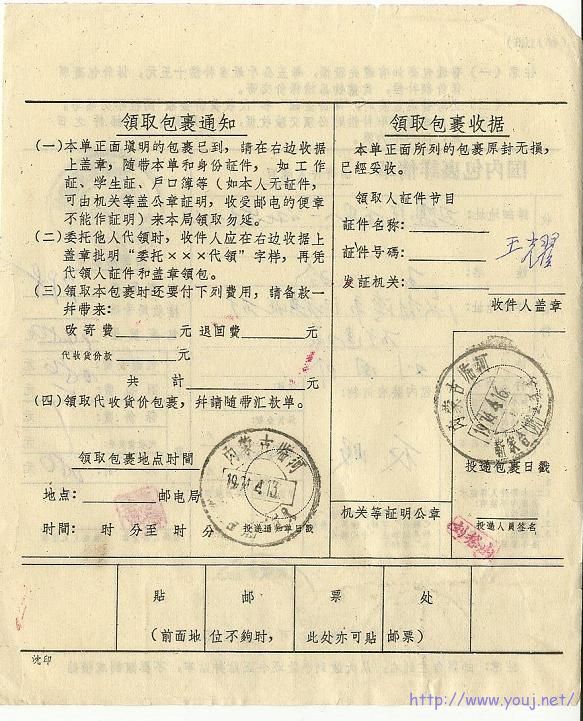 領取包裹通知
(一)本单正面填明的包裹已到,请在右边收据
上盖章,随带本单和身份証件,如工作
証、学生証、户口簿等(如本人无証件,
可由机关等盖公章証明,收受邮电的便章
不能作証明)来本局領取勿延。
(二)委托他人代領时,收件人应在右边收据上
盖章批明“委托×××代領”字样,再凭
代領人証件和盖章領包。
(三)領取本包裹时还要付下列费用,请备款一
幷带来:
欠寄费 元 退回费 元
代收货价款 元
共計 元
(四)領取代收货价包裹,幷請随带汇款单。
領取包裹地点时間
地点: 邮电局
时間: 时 分至 时 分
投递通知单日戳
内蒙古临河
1974.4.13
領取包裹收据
本单正面所列的包裹原封无损,
已經妥收。
領取人証件节目
証件名称:
証件号碼:
发証机关:
王耀
收件人盖章
内蒙古临河
1974.4.16
投递包裹日戳
机关等証明公章
投递人員签名
貼 邮 票 处
(前面地位不夠时, 此处亦可貼邮票)
沈印
http://www.youj.net/